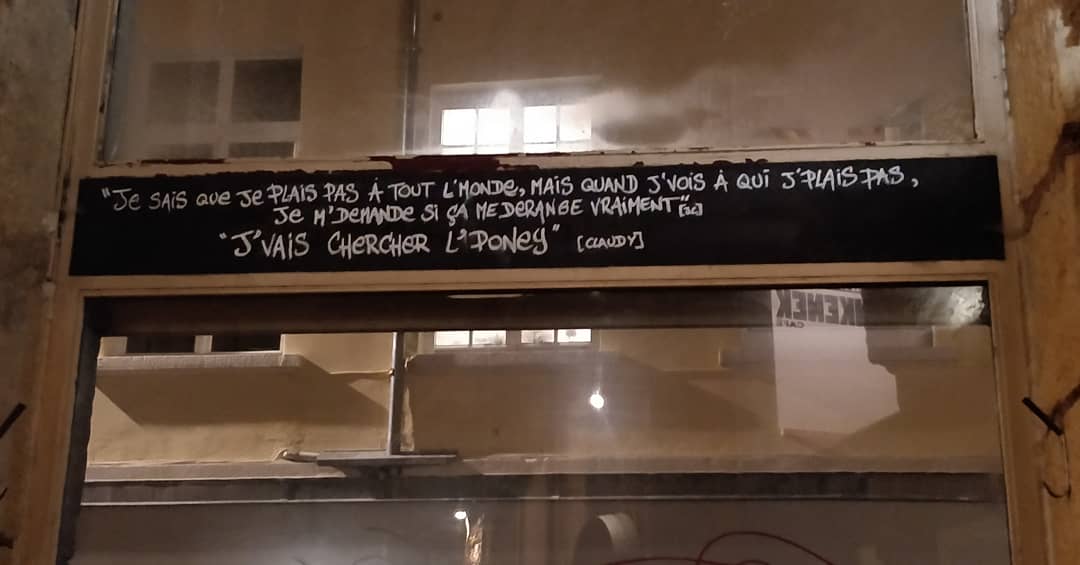 "Je SAiS QUe Je PLAiS PAS À TOUT L'MONDe, MAiS QUAND J'VOiS À QUi J'PLAiS PAS,
Je M'DeMANDe Si ÇA Me DeRANGe VRAiMeNT"
"J'VAiS CHeRCHeR L'PONeY" [CLAUDY]
KENEK
CAFE